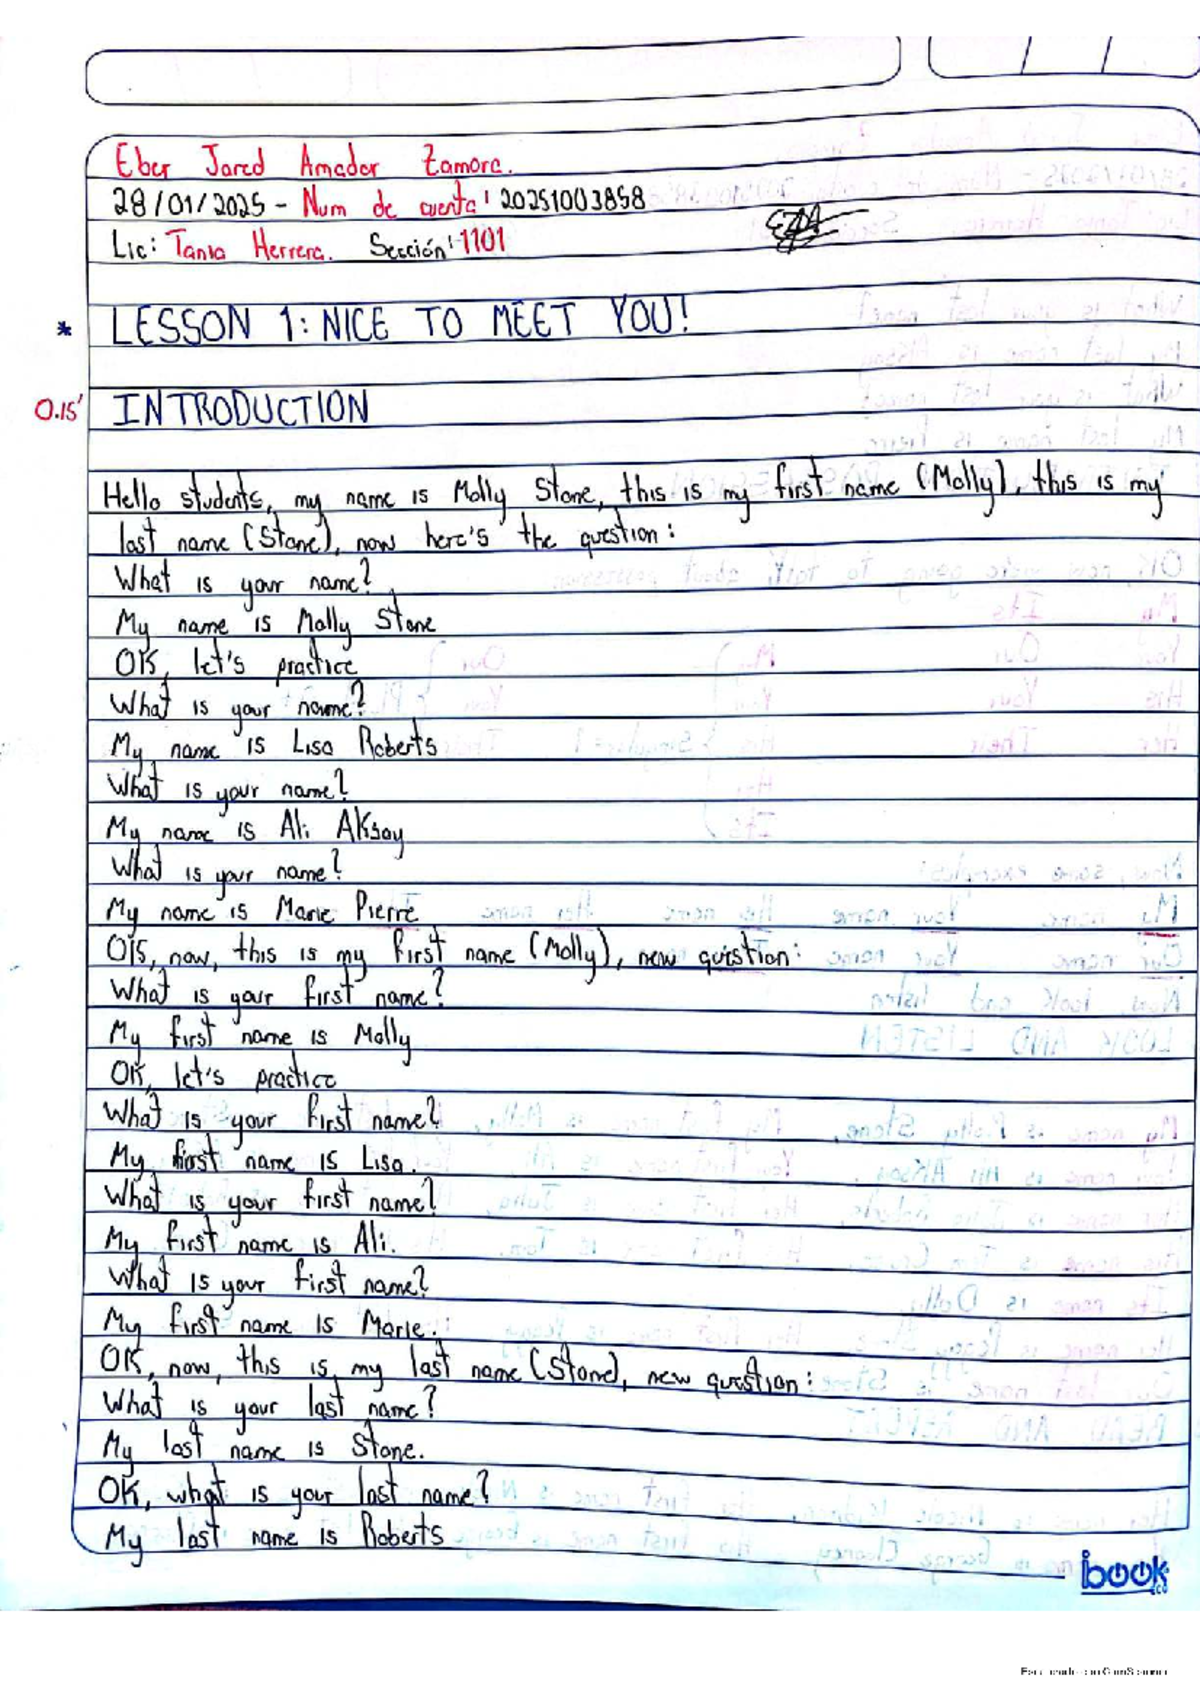 Eber Jared Amador Zamora.
28/01/2025 - Num de cuenta: 20251003858
Lic: Tania Herrera. Sección: 1101
* LESSON 1: NICE TO MEET YOU!
0.15' INTRODUCTION
Hello students, my name is Molly Stone, this is my first name (Molly), this is my
last name (Stone), now here's the question:
What is your name?
My name is Molly Stone
OK, let's practice
What is your name?
My name is Lisa Roberts
What is your name?
My name is Ali AKsay
What is your name?
My name is Marie Pierre
OK, now, this is my first name (Molly), new question:
What is your first name?
My first name is Molly
OK, let's practice
What is your first name?
My first name is Lisa.
What is your first name?
My first name is Ali.
What is your first name?
My first name is Marie.
OK, now, this is my last name (Stone), new question:
What is your last name?
My last name is Stone.
OK, what is your last name?
My last name is Roberts
ibook